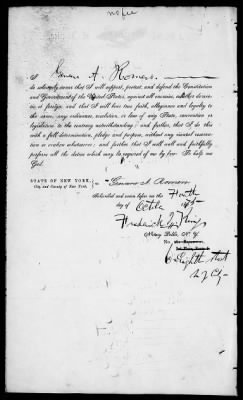 no fee
I Genaro A. Romero
do solemnly swear that I will support, protect, and defend the Constitution
and Government of the United States, against all enemies, whether domestic
or foreign, and that I will bear true faith, allegiance and loyalty to
the same, any ordinance, resolution, or law of any State, convention or
legislature to the contrary notwithstanding; and further, that I do this
with a full determination, pledge and purpose, without any mental reservation
or evasion whatsoever; and further that I will well and faithfully
perform all the duties which may be required of me by law. So help me
God.
STATE OF NEW YORK,
City and County of New York,
ss.
Genaro A Romero
Subscribed and sworn before me this Fourth
day of October
Frederick
Notary Public, N. Y.
No.
6 Eighth street
N.Y. Cy.